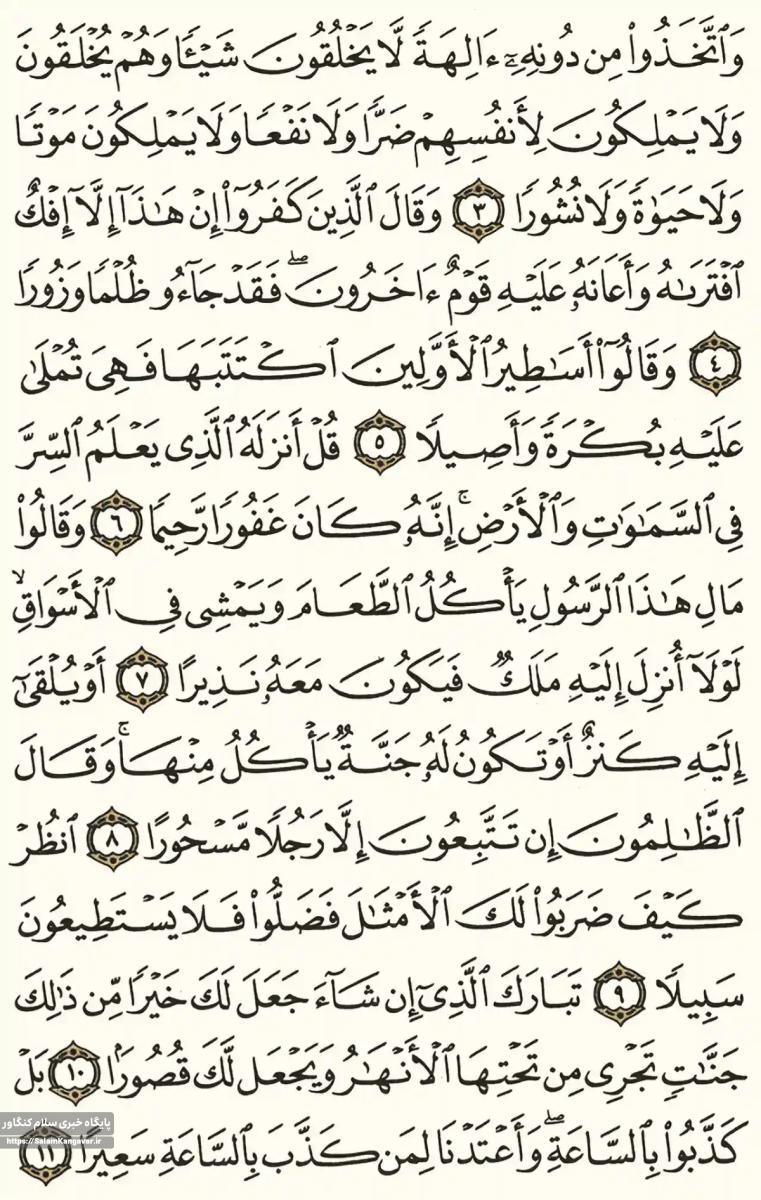 وَٱتَّخَذُوا۟ مِن دُونِهِۦٓ ءَالِهَةً لَّا يَخْلُقُونَ شَيْـًٔا وَهُمْ يُخْلَقُونَ
وَلَا يَمْلِكُونَ لِأَنفُسِهِمْ ضَرًّا وَلَا نَفْعًا وَلَا يَمْلِكُونَ مَوْتًا
وَلَا حَيَوٰةً وَلَا نُشُورًا ٣ وَقَالَ ٱلَّذِينَ كَفَرُوٓا۟ إِنْ هَـٰذَآ إِلَّآ إِفْكٌ
ٱفْتَرَىٰهُ وَأَعَانَهُۥ عَلَيْهِ قَوْمٌ ءَاخَرُونَ ۖ فَقَدْ جَآءُو ظُلْمًا وَزُورًا
٤ وَقَالُوٓا۟ أَسَـٰطِيرُ ٱلْأَوَّلِينَ ٱكْتَتَبَهَا فَهِىَ تُمْلَىٰ
عَلَيْهِ بُكْرَةً وَأَصِيلًا ٥ قُلْ أَنزَلَهُ ٱلَّذِى يَعْلَمُ ٱلسِّرَّ
فِى ٱلسَّمَـٰوَٰتِ وَٱلْأَرْضِ ۚ إِنَّهُۥ كَانَ غَفُورًا رَّحِيمًا ٦ وَقَالُوا۟
مَالِ هَـٰذَا ٱلرَّسُولِ يَأْكُلُ ٱلطَّعَامَ وَيَمْشِى فِى ٱلْأَسْوَاقِ ۙ
لَوْلَآ أُنزِلَ إِلَيْهِ مَلَكٌ فَيَكُونَ مَعَهُۥ نَذِيرًا ٧ أَوْ يُلْقَىٰٓ
إِلَيْهِ كَنزٌ أَوْ تَكُونُ لَهُۥ جَنَّةٌ يَأْكُلُ مِنْهَا ۚ وَقَالَ
ٱلظَّـٰلِمُونَ إِن تَتَّبِعُونَ إِلَّا رَجُلًا مَّسْحُورًا ٨ ٱنظُرْ
كَيْفَ ضَرَبُوا۟ لَكَ ٱلْأَمْثَـٰلَ فَضَلُّوا۟ فَلَا يَسْتَطِيعُونَ
سَبِيلًا ٩ تَبَارَكَ ٱلَّذِىٓ إِن شَآءَ جَعَلَ لَكَ خَيْرًا مِّن ذَٰلِكَ
جَنَّـٰتٍ تَجْرِى مِن تَحْتِهَا ٱلْأَنْهَـٰرُ وَيَجْعَل لَّكَ قُصُورًۢا ١٠ بَلْ
كَذَّبُوا۟ بِٱلسَّاعَةِ ۖ وَأَعْتَدْنَا لِمَن كَذَّبَ بِٱلسَّاعَةِ سَعِيرًا ١١
پایگاه خبری سلام کنگاور
https://SalamKangaver.ir